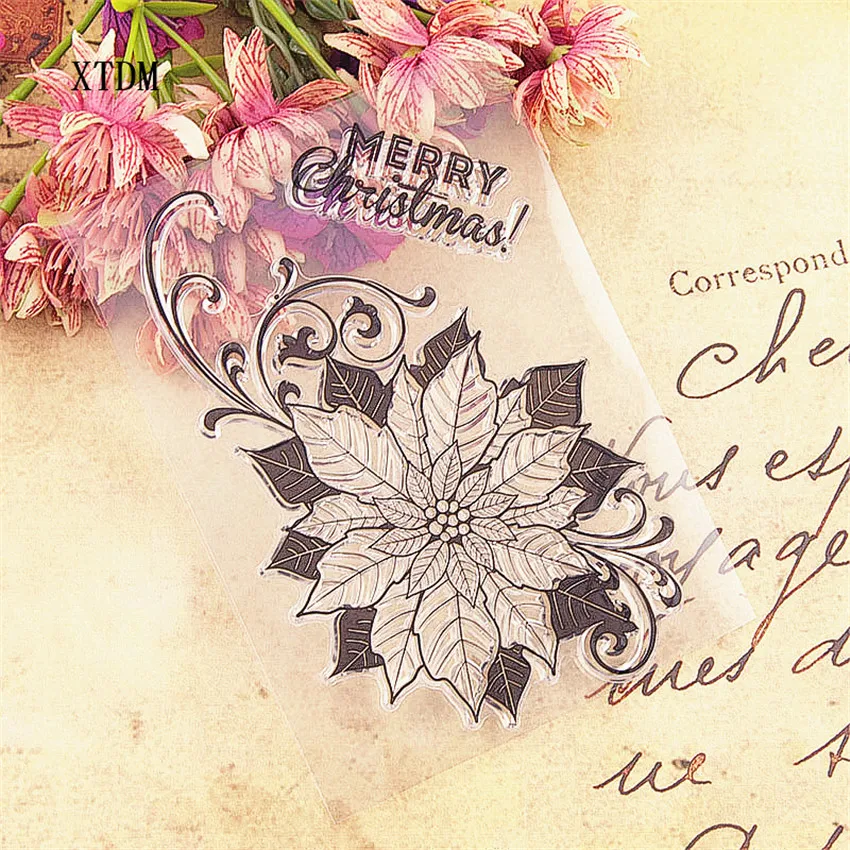 XTDM
MERRY
Christmas!
Correspond
Che
Vous es
voyage
ues d
ue